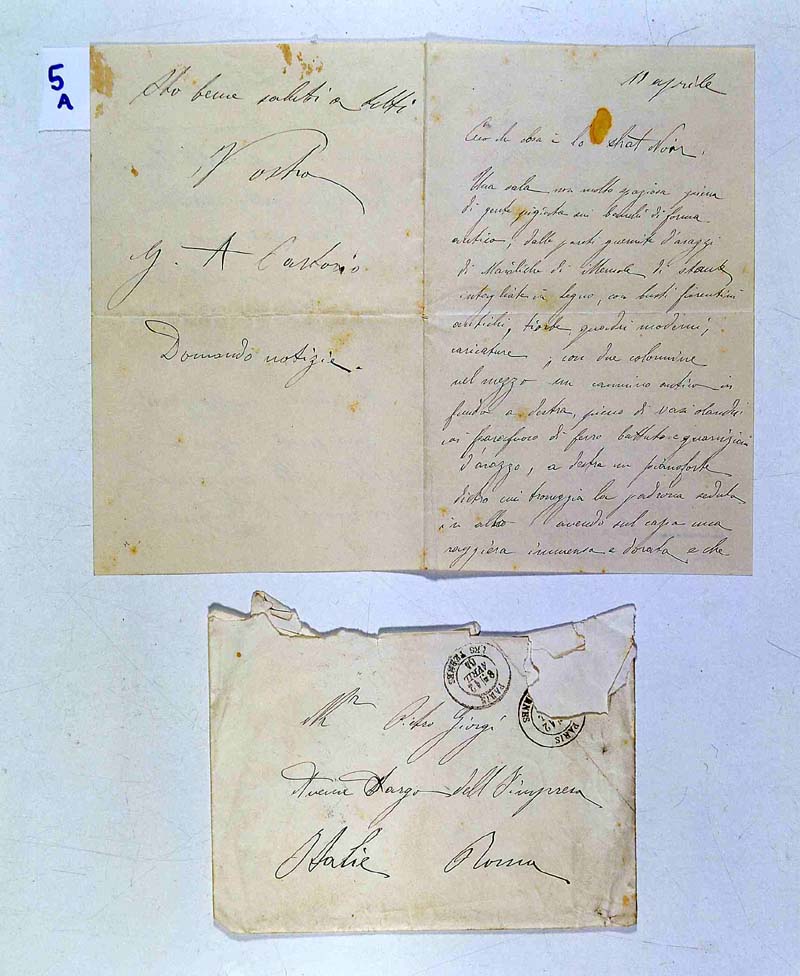 5
A
Sto bene saluti a tutti
Vostro
G. A Sartorio
Domando notizie.
11 aprile
Ciò che cosa è lo Chat Noir.
Una sala non molto spaziosa piena
di gente pigiata sui banchi di forma
antica, dalle pareti guernite d'arazzi
di di di
intagliate in legno, con busti fiorentini
antichi, quadri moderni,
caricature, con due colonnine
nel mezzo un camino antico in
fondo a destra, pieno di vasi olandesi
parafuoco di ferro battuto e guarnizioni
d'arazzo, a destra un pianoforte
dietro cui troneggia la padrona seduta
in alto avendo sul capo una
raggiera immensa e dorata e che
PARIS
AVRIL
PARIS
Mr Pietro Giorgi
Largo dell'Impresa
Italie Roma